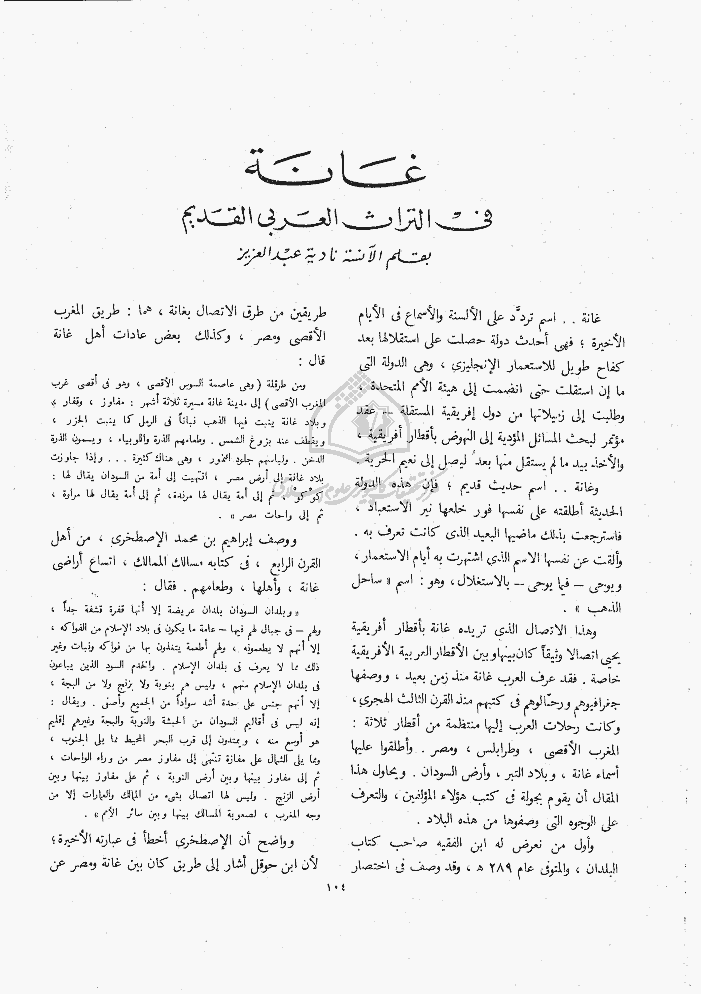 غانة
فى التراث العربى القديم
بقلم الآنسة نادية عبد العزيز
غانة . . اسم تردَّد على الألسنة والأسماع فى الأيام
الأخيرة ؛ فهى أحدث دولة حصلت على استقلالها بعد
كفاح طويل للاستعمار الإنجليزي ، وهى الدولة التى
ما إن استقلت حتى انضمت إلى هيئة الأمم المتحدة ،
وطلبت إلى زميلاتها من دول إفريقية المستقلة — عقد
مؤتمر لبحث المسائل المؤدية إلى النهوض بأقطار أفريقية ،
والأخذ بيد ما لم يستقل منها بعدُ ليصل إلى نعيم الحرية .
وغانة . . اسم حديث قديم ؛ فإن هذه الدولة
الحديثة أطلقته على نفسها فور خلعها نير الاستعباد ،
فاسترجعت بذلك ماضيها البعيد الذى كانت تعرف به .
وألقت عن نفسها الاسم الذى اشتهرت به أيام الاستعمار ،
ويوحى — فيما يوحى — بالاستغلال ، وهو : اسم « ساحل
الذهب » .
وهذا الاتصال الذي تريده غانة بأقطار أفريقية
يحيى اتصالا وثيقاً كان بينها وبين الأقطار العربية الأفريقية
خاصة . فقد عرف العرب غانة منذ زمن بعيد ، ووصفها
جغرافيوهم ورحّالوهم فى كتبهم منذ القرن الثالث الهجرى ،
وكانت رحلات العرب إليها منتظمة من أقطار ثلاثة :
المغرب الأقصى ، وطرابلس ، ومصر . وأطلقوا عليها
أسماء غانة ، وبلاد التبر ، وأرض السودان . ويحاول هذا
المقال أن يقوم بجولة فى كتب هؤلاء المؤلفين ، والتعرف
على الوجوه التى وصفوها من هذه البلاد .
وأول من نعرض له ابن الفقيه صاحب كتاب
البلدان ، والمتوفى عام ٢٨٩ هـ ، وقد وصف فى اختصار
طريقين من طرق الاتصال بغانة ، هما : طريق المغرب
الأقصى ومصر ، وكذلك بعض عادات أهل غانة
قال :
ومن طرقلة ( وهى عاصمة السوس الأقصى ، وهو فى أقصى غرب
المغرب الأقصى ) إلى مدينة غانة مسيرة ثلاثة أشهر : مفاوز ، وقفار «
وبلاد غانة ينبت فيها الذهب نباتاً فى الرمل كما ينبت الجزر ،
ويقطف عند بزوغ الشمس . وطعامهم الذرة واللوبياء ، ويسمون الذرة
الدخن . ولباسهم جلود النمور ، وهى هناك كثيرة . . . وإذا جاوزت
بلاد غانة إلى أرض مصر ، انتهيت إلى أمة من السودان يقال لها :
كَوْكَوْ ، ثم إلى أمة يقال لها مرندة ، ثم إلى أمة يقال لها مرارة ،
ثم إلى واحات مصر » .
ووصف إبراهيم بن محمد الإصطخرى ، من أهل
القرن الرابع ، فى كتابه مسالك الممالك ، اتساع أراضى
غانة ، وأهلها ، وطعامهم . فقال :
« وبلدان السودان بلدان عريضة إلا أنها قفرة قشفة جداً ،
ولهم — فى جبال لهم فيها — عامة ما يكون فى بلاد الإسلام من الفواكه ،
إلا أنهم لا يطعمونه ، ولهم أطعمة يتغذون بها من فواكه ونبات وغير
ذلك مما لا يعرف فى بلدان الإسلام . والخدم السود الذين يباعون
فى بلدان الإسلام منهم ، وليس هم بنوبة ولا بزنج ولا من البجة ،
إلا أنهم جنس على حدة أشد سواداً من الجميع وأصفى . ويقال :
إنه ليس فى أقاليم السودان من الحبشة والنوبة والبجة وغيرهم إقليم
هو أوسع منه ، ويمتدون إلى قرب البحر المحيط مما يلى الجنوب ،
ومما يلى الشمال على مفازة تنتهى إلى مفاوز مصر من وراء الواحات ،
ثم إلى مفاوز بينها وبين أرض النوبة ، ثم على مفاوز بينها وبين
أرض الزنج . وليس لها اتصال بشىء من الممالك والعمارات إلا من
وجه المغرب ، لصعوبة المسالك بينها وبين سائر الأمم » .
وواضح أن الإصطخرى أخطأ فى عبارته الأخيرة ؛
لأن ابن حوقل أشار إلى طريق كان بين غانة ومصر عن
١٠٤